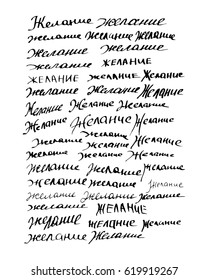 Желание желание
желание желание желание
желание желание
желание ЖЕЛАНИЕ
ЖЕЛАНИЕ желание Желание
Желание желание Желание
Желание Желание Желание
Желание Желание желание
желание желание
желание желание Желание
желание желание желание
Желание желание Желание
желание желание желание
желание Желание желание
желание ЖЕЛАНИЕ
желание желание Желание
желание ЖЕЛАНИЕ Желание
желание Желание
shutterstock.com · 619919267